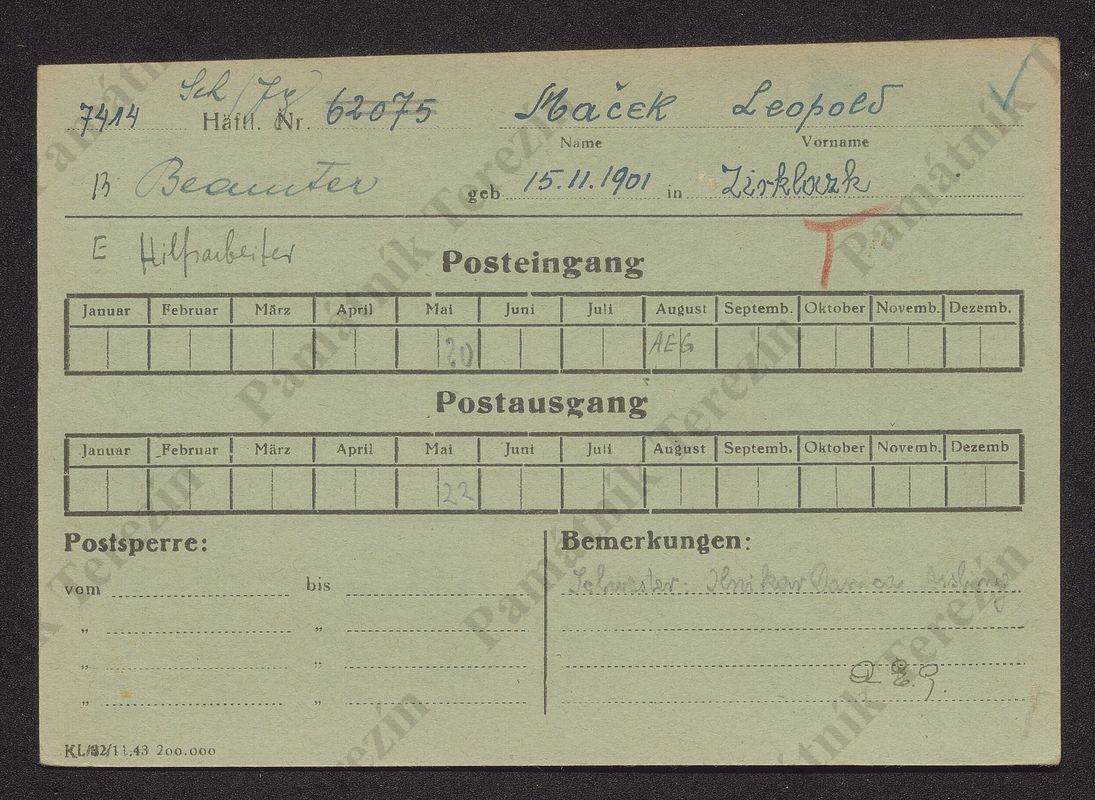 Sch (Jg)
7414 Häftl. Nr. 62075 Maček Leopold
Name Vorname
B Beamter geb 15.11.1901 in Zirklazk
T
E Hilfsarbeiter
Posteingang
Januar Februar März April Mai Juni Juli August Septemb. Oktober Novemb. Dezemb.
20 AEG
Postausgang
Januar Februar März April Mai Juni Juli August Septemb. Oktober Novemb. Dezemb
22
Postsperre: Bemerkungen:
vom bis Schwester
" "
" "
" "
KL/82/11.43 200.000
Památník Terezín